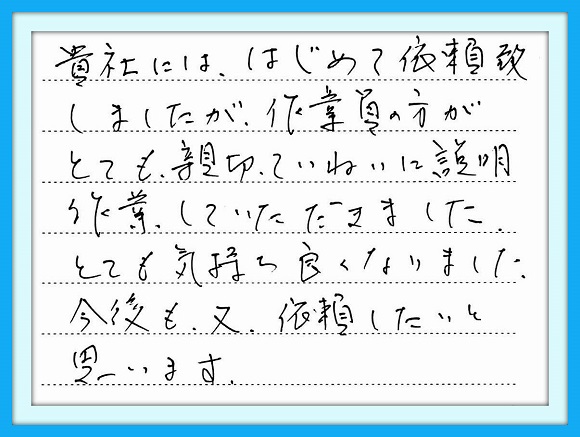 貴社には、はじめて依頼致
しましたが、作業員の方が
とても、親切、ていねいに説明
作業、していただきました。
とても気持ち良くなりました。
今後も、又、依頼したいと
思います。